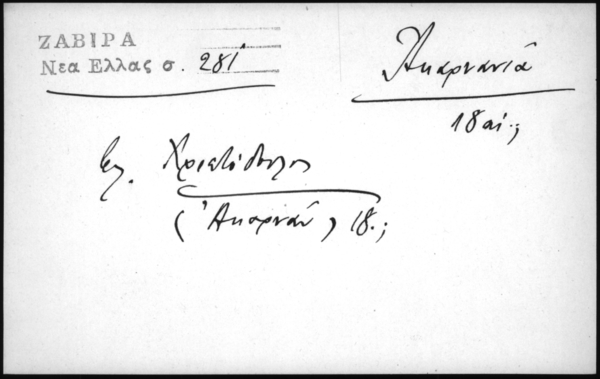 ΖΑΒΙΡΑ
Νεα Ελλας σ. 281
Ἀκαρνανία
18 αἰ.;
Χριστόδουλος
(Ἀκαρνάν) 18.;